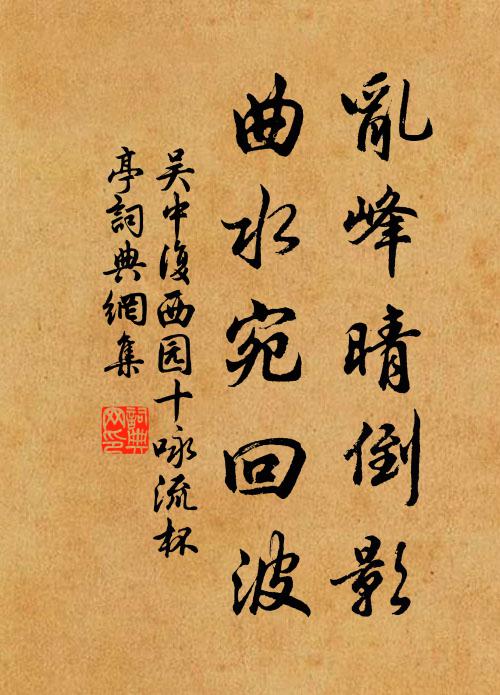 亂峰晴倒影
曲水宛回波
吴中復西园十咏流杯
亭詞典網集
詞典网印